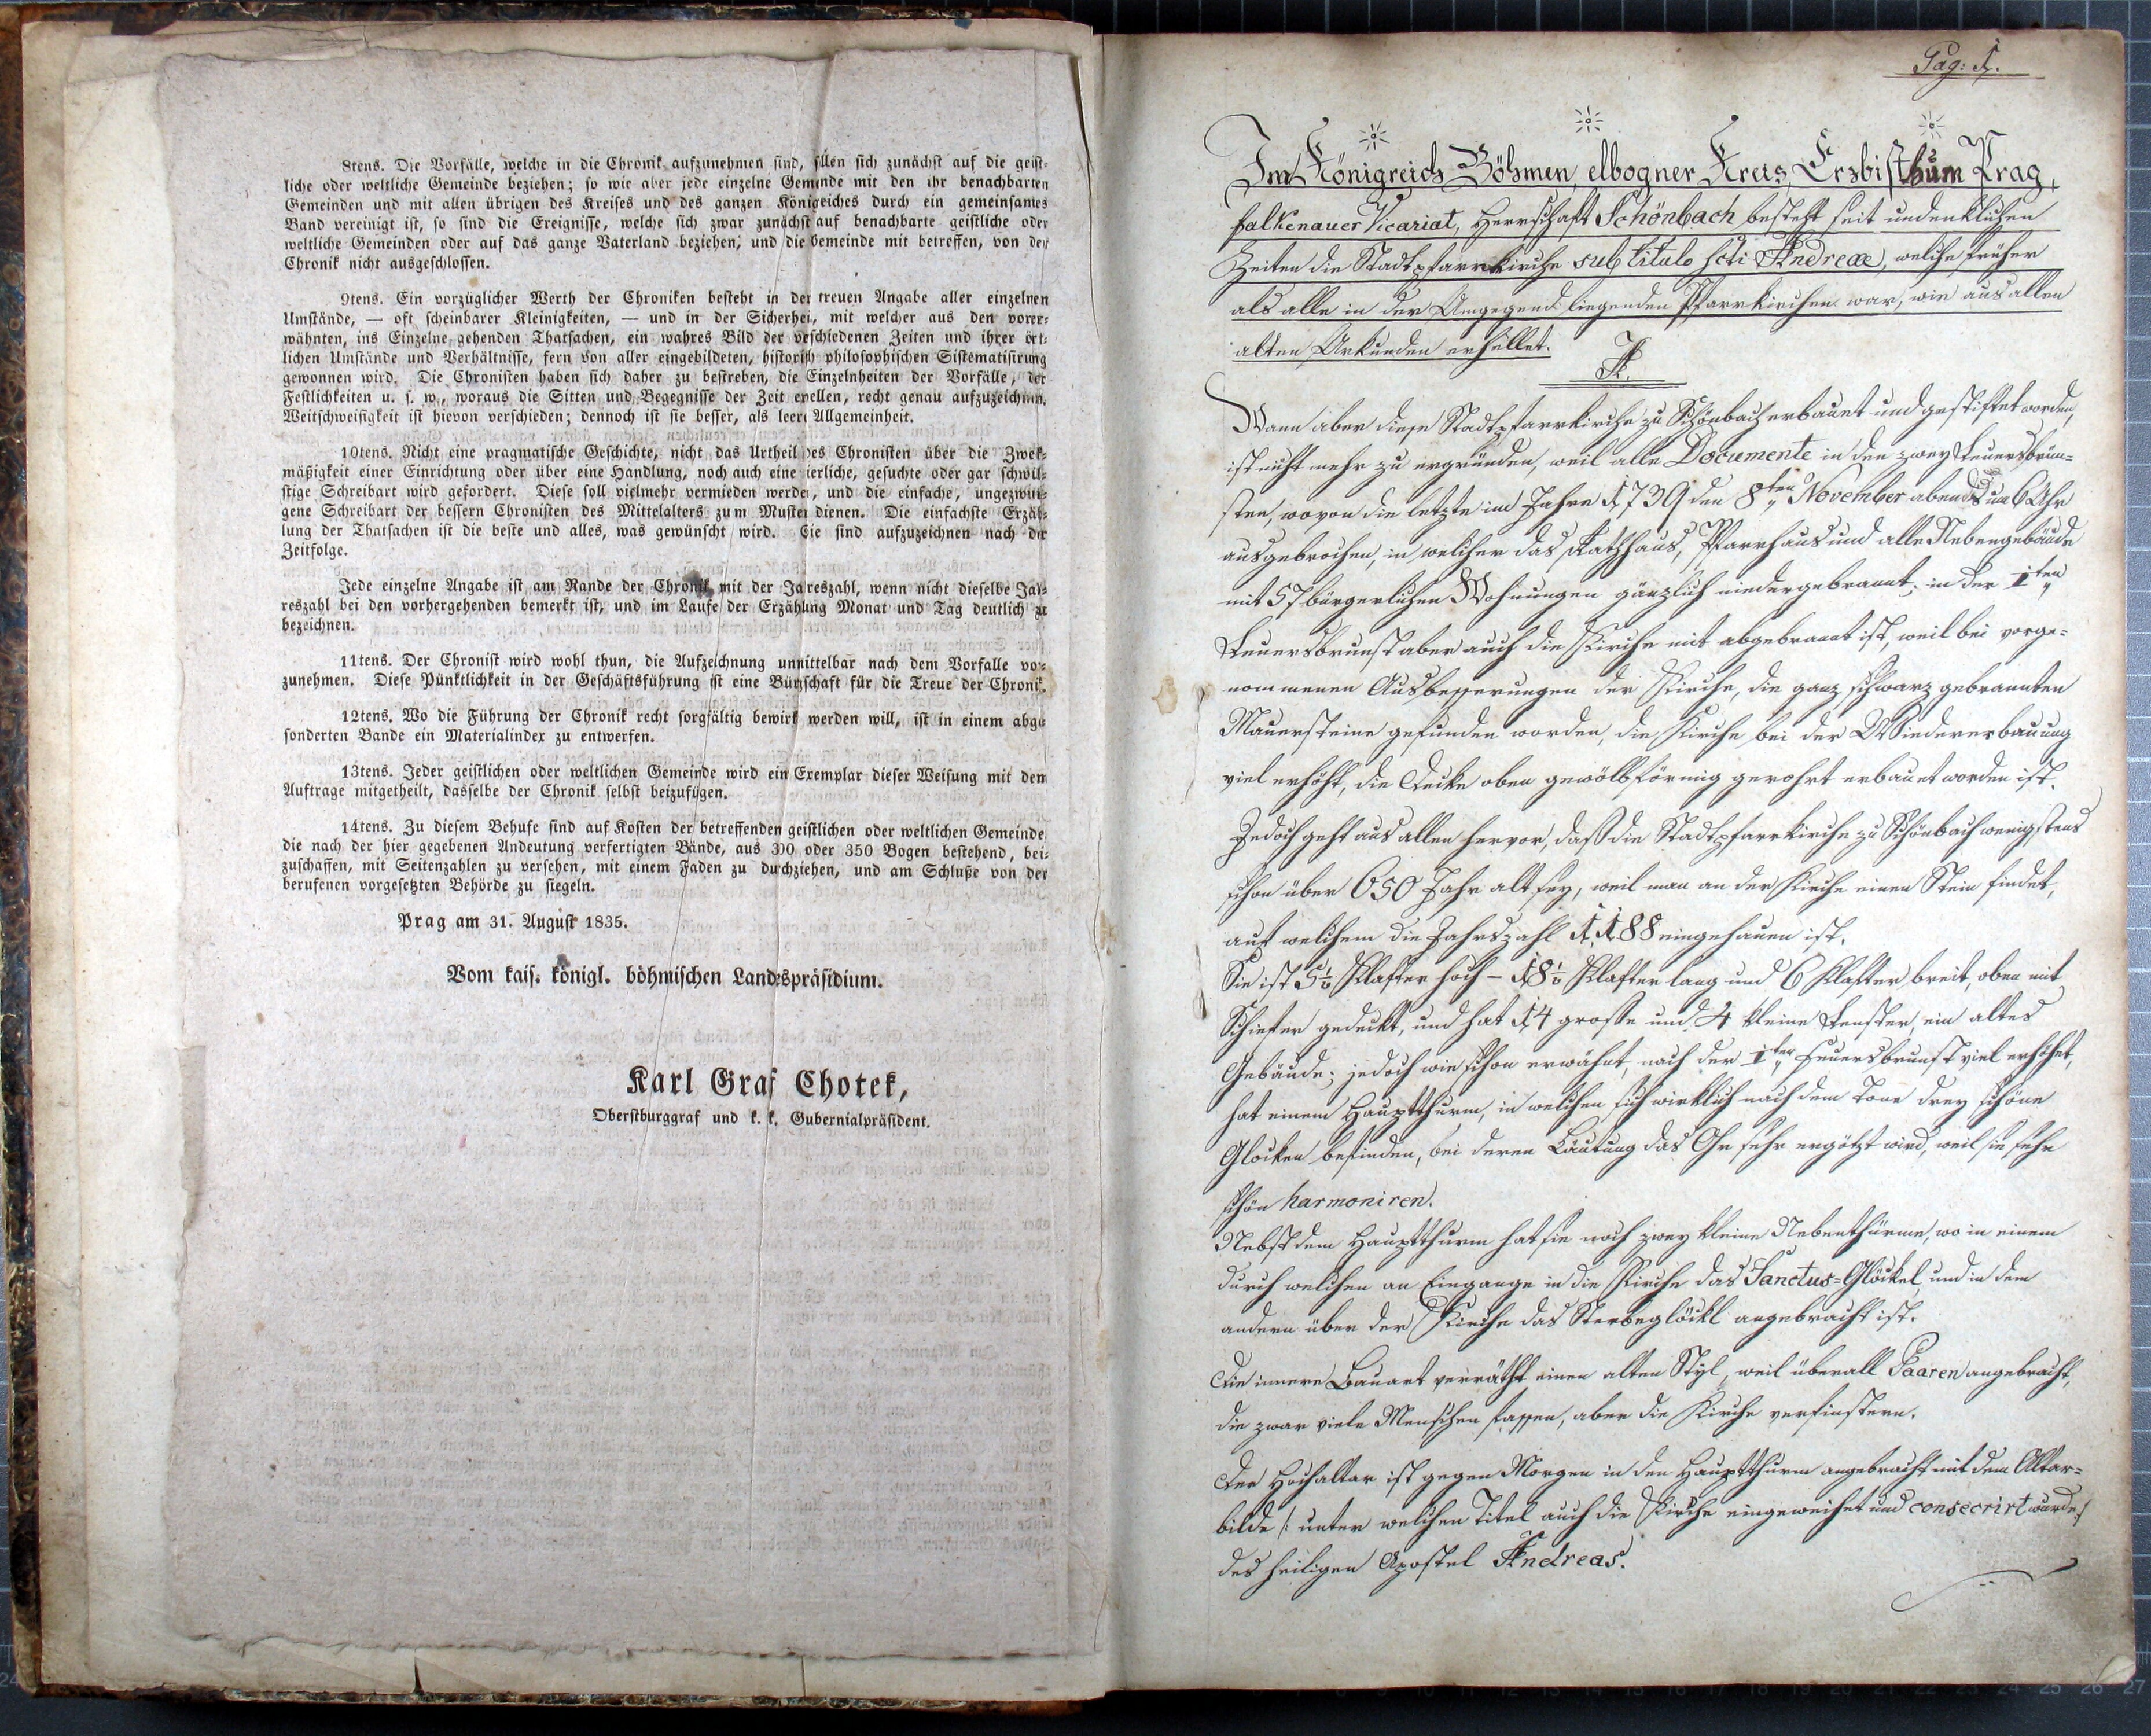 8tens. Die Vorfälle, welche in die Chronik aufzunehmen sind, sllen sich zunächst auf die geist-
liche oder weltliche Gemeinde beziehen; so wie aber jede einzelne Gemeinde mit den ihr benachbarten
Gemeinden und mit allen übrigen des Kreises und des ganzen Königreiches durch ein gemeinsames
Band vereinigt ist, so sind die Ereignisse, welche sich zwar zunächst auf benachbarte geistliche oder
weltliche Gemeinden oder auf das ganze Vaterland beziehen, und die Gemeinde mit betreffen, von der
Chronik nicht ausgeschlossen.
9tens. Ein vorzüglicher Werth der Chroniken besteht in der treuen Angabe aller einzelnen
Umstände, — oft scheinbarer Kleinigkeiten, — und in der Sicherhei, mit welcher aus den vorer-
wähnten, ins Einzelne gehenden Thatsachen, ein wahres Bild der verschiedenen Zeiten und ihrer ört-
lichen Umstände und Verhältnisse, fern von aller eingebildeten, historisch philosophischen Sistematisirung
gewonnen wird. Die Chronisten haben sich daher zu bestreben, die Einzelnheiten der Vorfälle, der
Festlichkeiten u. s. w., woraus die Sitten und Begegnisse der Zeit erellen, recht genau aufzuzeichnen.
Weitschweifigkeit ist hievon verschieden; dennoch ist sie besser, als leere Allgemeinheit.
10tens. Nicht eine pragmatische Geschichte, nicht das Urtheil des Chronisten über die Zwek-
mäßigkeit einer Einrichtung oder über eine Handlung, noch auch eine ierliche, gesuchte oder gar schwül-
stige Schreibart wird gefordert. Diese soll vielmehr vermieden werden, und die einfache, ungezwun-
gene Schreibart der bessern Chronisten des Mittelalters zum Muster dienen. Die einfachste Erzäh-
lung der Thatsachen ist die beste und alles, was gewünscht wird. Sie sind aufzuzeichnen nach der
Zeitfolge.
Jede einzelne Angabe ist am Rande der Chronik mit der Jareszahl, wenn nicht dieselbe Jah-
reszahl bei den vorhergehenden bemerkt ist, und im Laufe der Erzählung Monat und Tag deutlich zu
bezeichnen.
11tens. Der Chronist wird wohl thun, die Aufzeichnung unmittelbar nach dem Vorfalle vor-
zunehmen. Diese Pünktlichkeit in der Geschäftsführung ist eine Bürgschaft für die Treue der Chronik.
12tens. Wo die Führung der Chronik recht sorgfältig bewirkt werden will, ist in einem abge
sonderten Bande ein Materialindex zu entwerfen.
13tens. Jeder geistlichen oder weltlichen Gemeinde wird ein Exemplar dieser Weisung mit dem
Auftrage mitgetheilt, dasselbe der Chronik selbst beizufügen.
14tens. Zu diesem Behufe sind auf Kosten der betreffenden geistlichen oder weltlichen Gemeinde
die nach der hier gegebenen Andeutung verfertigten Bände, aus 300 oder 350 Bogen bestehend, bei-
zuschaffen, mit Seitenzahlen zu versehen, mit einem Faden zu durchziehen, und am Schluße von der
berufenen vorgesetzten Behörde zu siegeln.
Prag am 31. August 1835.
Vom kais. königl. böhmischen Landespräsidium.
Karl Graf Chotek,
Oberstburggraf und k. k. Gubernialpräsident.
Pag: 1.
Im Königreich Böhmen, elbogner Kreis, Erzbisthum Prag,
falkenauer Vicariat, Herrschaft Schönbach besteht seit undenklichen
Zeiten die Stadtpfarrkirche sub titulo scti Andreæ, welche früher
als alle in der Umgegend liegenden Pfarrkirchen war, wie aus allen
alten Urkunden erhellet.
A.
Wann aber diese Stadtpfarrkirche zu Schönbach erbauet und gestiftet worden,
ist nicht mehr zu ergründen, weil alle Documente in den zwey Feuersbrün-
sten, wovon die letzte im Jahre 1739 den 8ten November abends um 6 Uhr
ausgebrochen, in welcher das Rathhaus, Pfarrhaus und alle Nebengebäude
mit 57 bürgerlichen Wohnungen gänzlich niedergebrannt; in der 1ten
Feuersbrunst aber auch die Kirche mit abgebrannt ist, weil bei vorge-
nommenen Ausbesserungen der Kirche, die ganz schwarz gebrannten
Mauersteine gefunden worden, die Kirche bei der Wiedererbauung
viel erhöht, die Decke oben gewölbförmig gerohrt erbauet worden ist.
Jedoch geht aus allen hervor, daß die Stadtpfarrkirche zu Schönbach wenigstens
schon über 650 Jahr alt sey, weil man an der Kirche einen Stein findet,
auf welchem die Jahrszahl 1188 eingehauen ist.
Sie ist 5½ Klafter hoch – 18½ Klafter lang und 6 Klafter breit, oben mit
Schiefer gedeckt, und hat 14 große und 4 kleine Fenster, ein altes
Gebäude; jedoch wie schon erwähnt, nach der 1ten Feuersbrunst viel erhöhet,
hat einem Hauptthurm, in welchen sich wirklich nach dem Tone drey schöne
Glocken befinden, bei deren Läutung das Ohr sehr ergötzt wird, weil sie sehr
schön harmoniren.
Nebst dem Hauptthurm hat sie noch zwey kleine Nebenthürme, wo in einem
durch welchen an Eingange in die Kirche das Sanctus-Glöckel, und in dem
andern über der Kirche das Sterbeglöckl angebracht ist.
Die innere Bauart verräth einen alten Styl, weil überall Paaren angebracht,
die zwar viele Menschen fassen, aber die Kirche verfinstern.
Der Hochaltar ist gegen Morgen in den Hauptthurm angebracht mit dem Altar-
bilde /: unter welchen Titel auch die Kirche eingeweihet und consecrirt wurde :/
des heiligen Apostel Andreas.